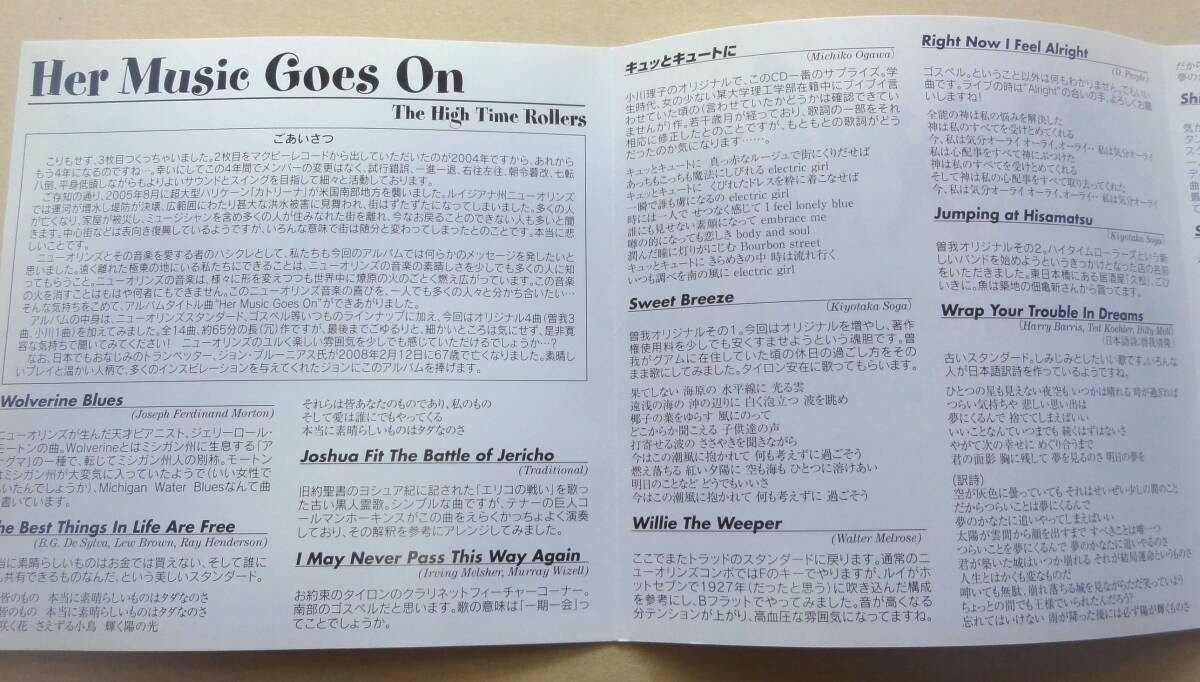 Her Music Goes On
The High Time Rollers
ごあいさつ
こりもせず、3枚目つくっちゃいました。2枚目をマクビーレコードから出していただいたのが2004年ですから、あれから
もう4年になるのですね…。幸いにしてこの4年間でメンバーの変更はなく、試行錯誤、一進一退、右往左往、朝令暮改、七転
八倒、平身低頭しながらもよりよいサウンドとスイングを目指して細々と活動しております。
ご存知の通り、2005年8月に超大型ハリケーン「カトリーナ」が米国南部地方を襲いました。ルイジアナ州ニューオリンズ
では運河が増水し堤防が決壊、広範囲にわたり甚大な洪水被害に見舞われ、街はずたずたになってしまいました。多くの人
が亡くなり、家屋が被災し、ミュージシャンを含め多くの人が住みなれた街を離れ、今なお戻ることのできない人も多いと聞
きます。中心街などは表向き復興しているようですが、いろんな意味で街は随分と変わってしまったとのことです。本当に悲
しいことです。
ニューオリンズとその音楽を愛する者のハシクレとして、私たちも今回のアルバムでは何らかのメッセージを発したいと
思いました。遠く離れた極東の地にいる私たちにできることは、ニューオリンズの音楽の素晴らしさを少しでも多くの人に知
ってもらうこと。ニューオリンズの音楽は、様々に形を変えつつも世界中に燎原の火のごとく燃え広がっています。この音楽
の火を消すことはもはや何者にもできません。このニューオリンズ音楽の喜びを、一人でも多くの人々と分かち合いたい…
そんな気持ちをこめて、アルバムタイトル曲“Her Music Goes On”ができあがりました。
アルバムの中身は、ニューオリンズスタンダード、ゴスペル等いつものラインナップに加え、今回はオリジナル4曲(曽我3
曲、小川1曲)を加えてみました。全14曲、約65分の長(冗)作ですが、最後までごゆるりと、細かいところは気にせず、是非寛
容な気持ちで聞いてみてください! ニューオリンズのユルく楽しい雰囲気を少しでも感じていただけるでしょうか…?
なお、日本でもおなじみのトランペッター、ジョン・ブルーニアス氏が2008年2月12日に67歳で亡くなりました。素晴し
いプレイと温かい人柄で、多くのインスピレーションを与えてくれたジョンにこのアルバムを捧げます。
Wolverine Blues
(Joseph Ferdinand Morton)
ニューオリンズが生んだ天才ピアニスト、ジェリーロール・
モートンの曲。Wolverineとはミシガン州に生息する「ア
グマ」の一種で、転じてミシガン州人の別称。モートン
はミシガン州が大変気に入っていたようで(いい女性で
いたんでしょうか)、Michigan Water Bluesなんて曲
書いています。
he Best Things In Life Are Free
(B.G. De Sylva, Lew Brown, Ray Henderson)
当に素晴らしいものはお金では買えない、そして誰に
も共有できるものなんだ、という美しいスタンダード。
皆のもの 本当に素晴らしいものはタダなのさ
皆のもの 本当に素晴らしいものはタダなのさ
咲く花 さえずる小鳥 輝く陽の光
それらは皆あなたのものであり、私のもの
そして愛は誰にでもやってくる
本当に素晴らしいものはタダなのさ
Joshua Fit The Battle of Jericho
(Traditional)
旧約聖書のヨシュア紀に記された「エリコの戦い」を歌っ
た古い黒人霊歌。シンプルな曲ですが、テナーの巨人コ
ールマンホーキンスがこの曲をえらくかっちょよく演奏
しており、その解釈を参考にアレンジしてみました。
I May Never Pass This Way Again
(Irving Melsher, Murray Wizell)
お約束のタイロンのクラリネットフィーチャーコーナー。
南部のゴスペルだと思います。歌の意味は「一期一会」っ
てことでしょうか。
キュッとキュートに
(Michiko Ogawa)
小川理子のオリジナルで、このCD一番のサプライズ。学
生時代、女の少ない某大学理工学部在籍中にブイブイ言
わせていた頃の(言わせていたかどうかは確認できてい
ませんが)作。若干歳月が経っており、歌詞の一部をそれ
相応に修正したとのことですが、もともとの歌詞がどう
だったのか気になります……。
キュッとキュートに 真っ赤なルージュで街にくりだせば
あっちもこっちも魔法にしびれる electric girl
キュッとキュートに くびれたドレスを粋に着こなせば
一瞬で誰も虜になるの electric girl
時には一人で せつなく感じて I feel lonely blue
誰にも見せない素顔になって embrace me
噂の的になっても悲しき body and soul
潤んだ瞳に灯りがにじむ Bourbon street
キュッとキュートに きらめきの中 時は流れ行く
いつも調べを南の風に electric girl
Sweet Breeze
(Kiyotaka Soga)
曽我オリジナルその1。今回はオリジナルを増やし、著作
権使用料を少しでも安くすませようという魂胆です。曽
我がグアムに在住していた頃の休日の過ごし方をその
まま歌にしてみました。タイロン安在に歌ってもらいます。
果てしない 海原の 水平線に 光る雲
遠浅の海の 沖の辺りに 白く泡立つ 波を眺め
椰子の葉をゆらす 風にのって
どこからか聞こえる 子供達の声
打寄せる波の ささやきを聞きながら
今はこの潮風に抱かれて 何も考えずに過ごそう
燃え落ちる 紅い夕陽に 空も海も ひとつに溶けあい
明日のことなど どうでもいいさ
今はこの潮風に抱かれて 何も考えずに 過ごそう
Willie The Weeper
(Walter Melrose)
ここでまたトラッドのスタンダードに戻ります。通常のニ
ューオリンズコンボではFのキーでやりますが、ルイがホ
ットセブンで1927年(だったと思う)に吹き込んだ構成
を参考にし、Bフラットでやってみました。音が高くなる
分テンションが上がり、高血圧な雰囲気になってますね。
Right Now I Feel Alright
(D. People)
ゴスペル。ということ以外は何もわかりません。でもいい
曲です。ライブの時は“Alright”の合いの手、よろしくお願
いしますね!
全能の神は私の悩みを解決した
神は私のすべてを受けとめてくれる
今、私は気分オーライ オーライ、オーライ・私は気分オーライ
私は心配事をすべて神にぶつけた
神は私のすべてを受けとめてくれる
そして神は私の心配事をすべて取り去ってくれた
今、私は気分オーライ オーライ、オーライ・私は気分オーライ
Jumping at Hisamatsu
(Kiyotaka Soga)
曽我オリジナルその2。ハイタイムローラーズという新
しいバンドを始めようというきっかけとなった店の名前
をいただきました。東日本橋にある居酒屋「久松」。ごひ
いきに。魚は築地の佃亀新さんから買ってます。
Wrap Your Trouble In Dreams
(Harry Barris, Ted Koehler, Billy Moll)
(日本語詩:曽我清隆)
古いスタンダード。しみじみとしたいい歌です。いろんな
人が日本語訳詩を作っているようですね。
ひとつの星も見えない夜空も いつかは晴れる 時が過ぎれば
つらい気持ちや 悲しい思い出は
夢にくるんで 捨ててしまえばいい
いいことなんていつまでも 続くはずはないさ
やがて次の幸せに めぐり合うまで
君の面影 胸に残して 夢を見るのさ 明日の夢を
(訳詩)
空が灰色に曇っていても それはせいぜい少しの間のこと
だからつらいことは夢にくるんで
夢のかなたに追いやってしまえばいい
太陽が雲間から顔を出すまで すべきことは唯一つ
つらいことを夢にくるんで 夢のかなたに追いやるのさ
君が築いた城はいつか崩れる それが結局運命というもの
人生とはかくも変なものだ
呻いても無駄、崩れ落ちる城を見ながらただ笑っていよう
ちょっとの間でも王様でいられたんだろう?
忘れてはいけない 雨が降った後には必ず陽が輝くものさ
だから
夢の
Shi